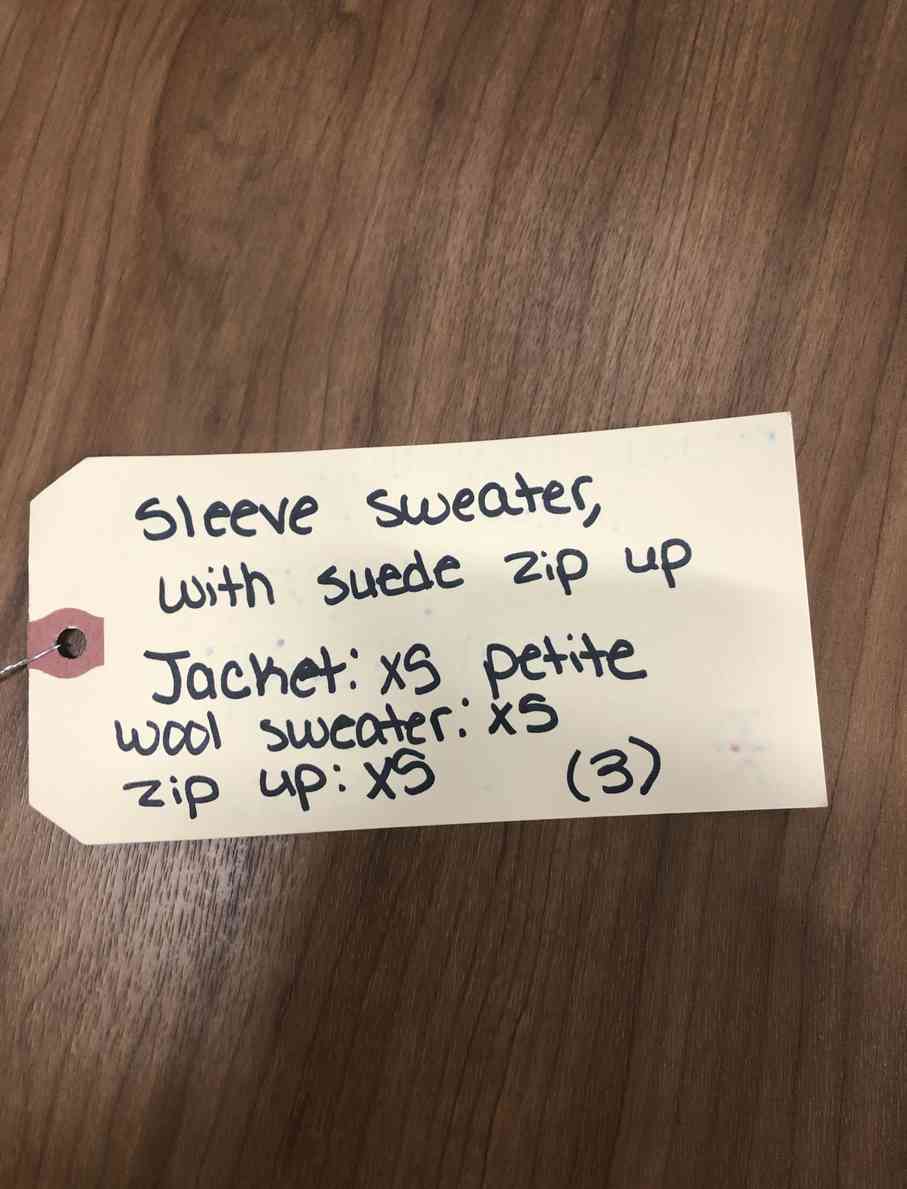 Sleeve sweater,
with suede zip up
Jacket: XS petite
wool sweater: XS
zip up: XS (3)